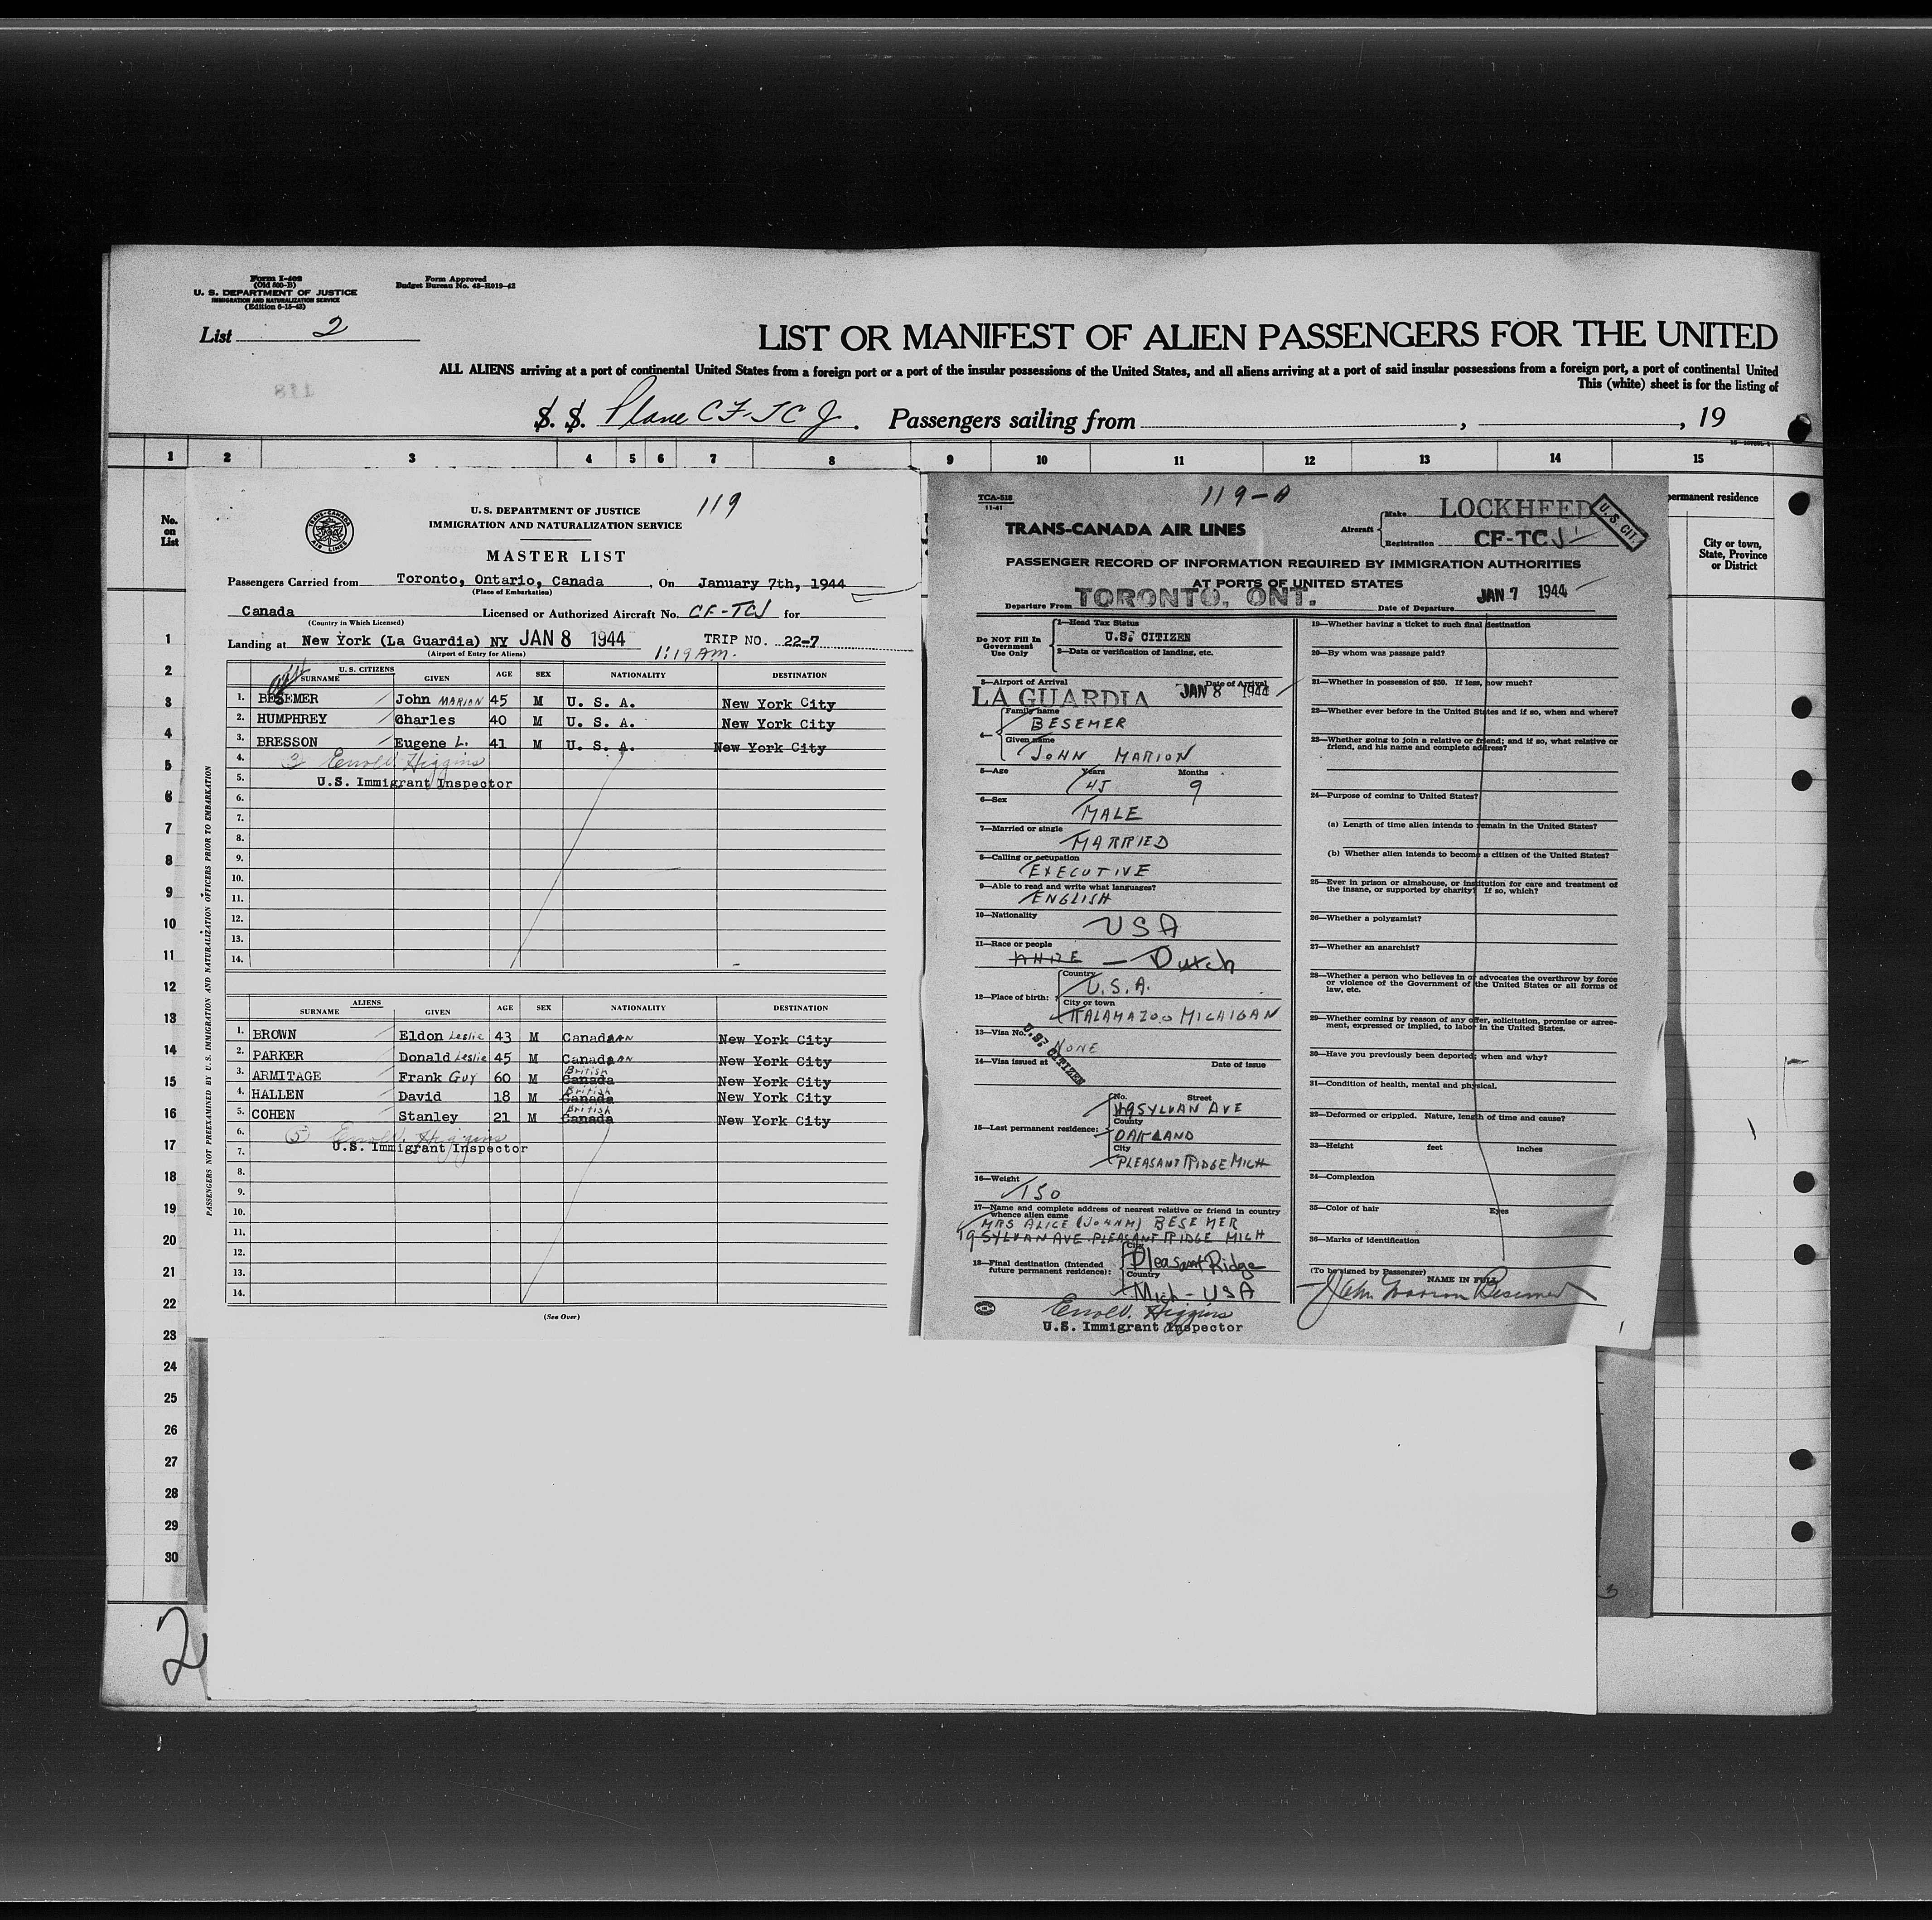 Form I-409
(Old 500-B)
U. S. DEPARTMENT OF JUSTICE
IMMIGRATION AND NATURALIZATION SERVICE
(Edition 6-15-43)
Form Approved
Budget Bureau No. 43-R019-42
List 2
LIST OR MANIFEST OF ALIEN PASSENGERS FOR THE UNITED
ALL ALIENS arriving at a port of continental United States from a foreign port or a port of the insular possessions of the United States, and all aliens arriving at a port of said insular possessions from a foreign port, a port of continental United
This (white) sheet is for the listing of
S. S. Plane CF-TCJ. Passengers sailing from , , 19
1 2 3 4 5 6 7 8 9 10 11 12 13 14 15
No. on List
permanent residence
City or town, State, Province or District
1
2
3
4
5
6
7
8
9
10
11
12
13
14
15
16
17
18
19
20
21
22
23
24
25
26
27
28
29
30
2
TRANS-CANADA AIR LINES
U. S. DEPARTMENT OF JUSTICE
119
IMMIGRATION AND NATURALIZATION SERVICE
MASTER LIST
Passengers Carried from Toronto, Ontario, Canada , On January 7th, 1944
(Place of Embarkation)
Canada Licensed or Authorized Aircraft No. CF-TCJ for
(Country in Which Licensed)
Landing at New York (La Guardia) NY JAN 8 1944 TRIP NO. 22-7
(Airport of Entry for Aliens) 1:19 AM.
U. S. CITIZENS
SURNAME GIVEN AGE SEX NATIONALITY DESTINATION
1. BESEMER John MARION 45 M U. S. A. New York City
2. HUMPHREY Charles 40 M U. S. A. New York City
3. BRESSON Eugene L. 41 M U. S. A. New York City
4. (3) Errol V. Higgins
5. U.S. Immigrant Inspector
6.
7.
8.
9.
10.
11.
12.
13.
14.
ALIENS
SURNAME GIVEN AGE SEX NATIONALITY DESTINATION
1. BROWN Eldon Leslie 43 M CanadIAN New York City
2. PARKER Donald Leslie 45 M CanadIAN New York City
3. ARMITAGE Frank GUY 60 M British Canada New York City
4. HALLEN David 18 M British Canada New York City
5. COHEN Stanley 21 M British Canada New York City
6. (5) Errol V. Higgins
7. U.S. Immigrant Inspector
8.
9.
10.
11.
12.
13.
14.
(See Over)
PASSENGERS NOT PREEXAMINED BY U. S. IMMIGRATION AND NATURALIZATION OFFICERS PRIOR TO EMBARKATION
TCA-518
11-41
119-A
TRANS-CANADA AIR LINES
Aircraft Make LOCKHEED
Registration CF-TCJ
U. S. CIT.
PASSENGER RECORD OF INFORMATION REQUIRED BY IMMIGRATION AUTHORITIES
AT PORTS OF UNITED STATES
Departure From TORONTO, ONT. Date of Departure JAN 7 1944
Do NOT Fill In Government Use Only
1—Head Tax Status
U.S. CITIZEN
2—Data or verification of landing, etc.
3—Airport of Arrival Date of Arrival
LA GUARDIA JAN 8 1944
4— Family name
BESEMER
Given name
JOHN MARION
5—Age Years Months
45 9
6—Sex
MALE
7—Married or single
MARRIED
8—Calling or occupation
EXECUTIVE
9—Able to read and write what languages?
ENGLISH
10—Nationality
USA
11—Race or people
WHITE — Dutch
12—Place of birth: Country
U.S.A.
City or town
KALAMAZOO MICHIGAN
13—Visa No. NONE
U.S. CITIZEN
14—Visa issued at Date of issue
15—Last permanent residence: No. Street
19 SYLVAN AVE
County
OAKLAND
City
PLEASANT RIDGE MICH
16—Weight
150
17—Name and complete address of nearest relative or friend in country whence alien came
MRS ALICE (JOHN M) BESEMER
19 SYLVAN AVE PLEASANT RIDGE MICH
18—Final destination (Intended future permanent residence): City
Pleasant Ridge
Country
Mich - USA
Errol V. Higgins
U.S. Immigrant Inspector
19—Whether having a ticket to such final destination
20—By whom was passage paid?
21—Whether in possession of $50. If less, how much?
22—Whether ever before in the United States and if so, when and where?
23—Whether going to join a relative or friend; and if so, what relative or friend, and his name and complete address?
24—Purpose of coming to United States?
(a) Length of time alien intends to remain in the United States?
(b) Whether alien intends to become a citizen of the United States?
25—Ever in prison or almshouse, or institution for care and treatment of the insane, or supported by charity? If so, which?
26—Whether a polygamist?
27—Whether an anarchist?
28—Whether a person who believes in or advocates the overthrow by force or violence of the Government of the United States or all forms of law, etc.
29—Whether coming by reason of any offer, solicitation, promise or agreement, expressed or implied, to labor in the United States.
30—Have you previously been deported; when and why?
31—Condition of health, mental and physical.
32—Deformed or crippled. Nature, length of time and cause?
33—Height feet inches
34—Complexion
35—Color of hair Eyes
36—Marks of identification
(To be signed by Passenger) NAME IN FULL
John Marion Besemer